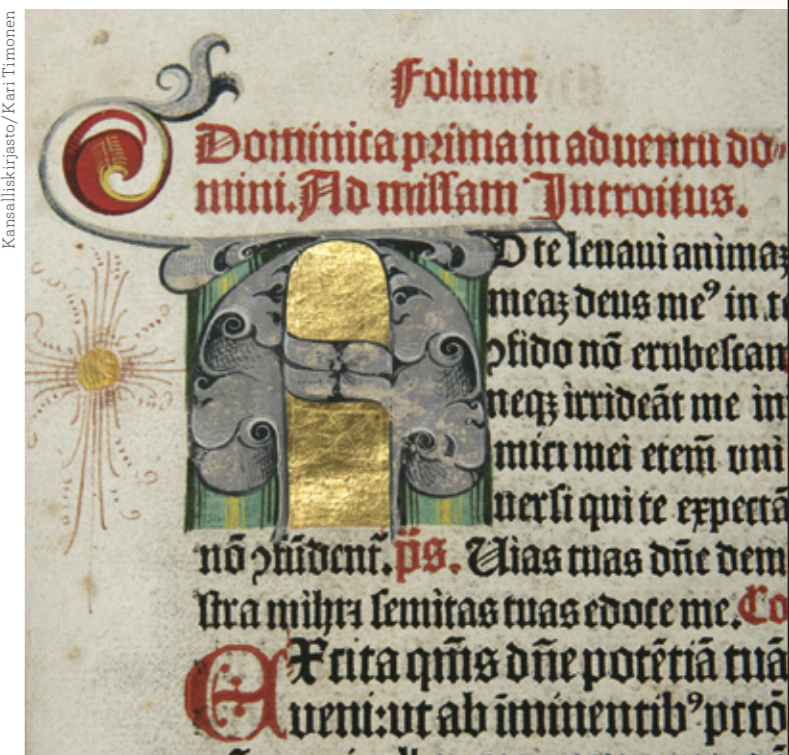 Kansalliskirjasto/Kari Timonen
Folium
Dominica prima in aduentu do⸗
mini. Ad missam Introitus.
AD te leuaui animaꝫ
meaꝫ deus meꝰ in te
ꝯfido nō erubescam
neqꝫ irrideāt me in
imici mei etem̄ vni
uersi qui te expectā
nō ꝯfūdent᷑. p̄s. Uias tuas dn̄e dem
stra mihi ⁊ semitas tuas edoce me. Co
EXcita qm̄s dn̄e potētiā tuā
⁊ veni: vt ab iminentibꝰ pctō